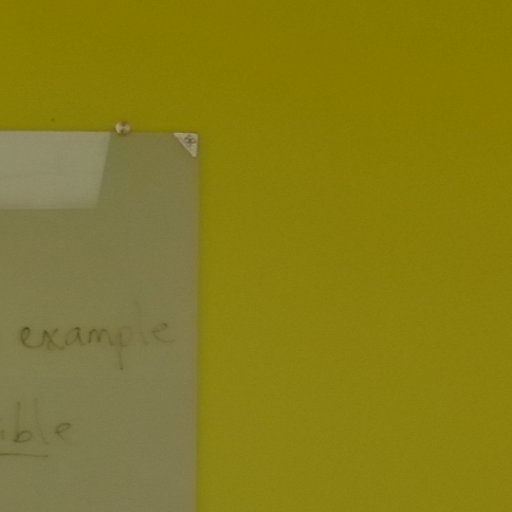 example
ible